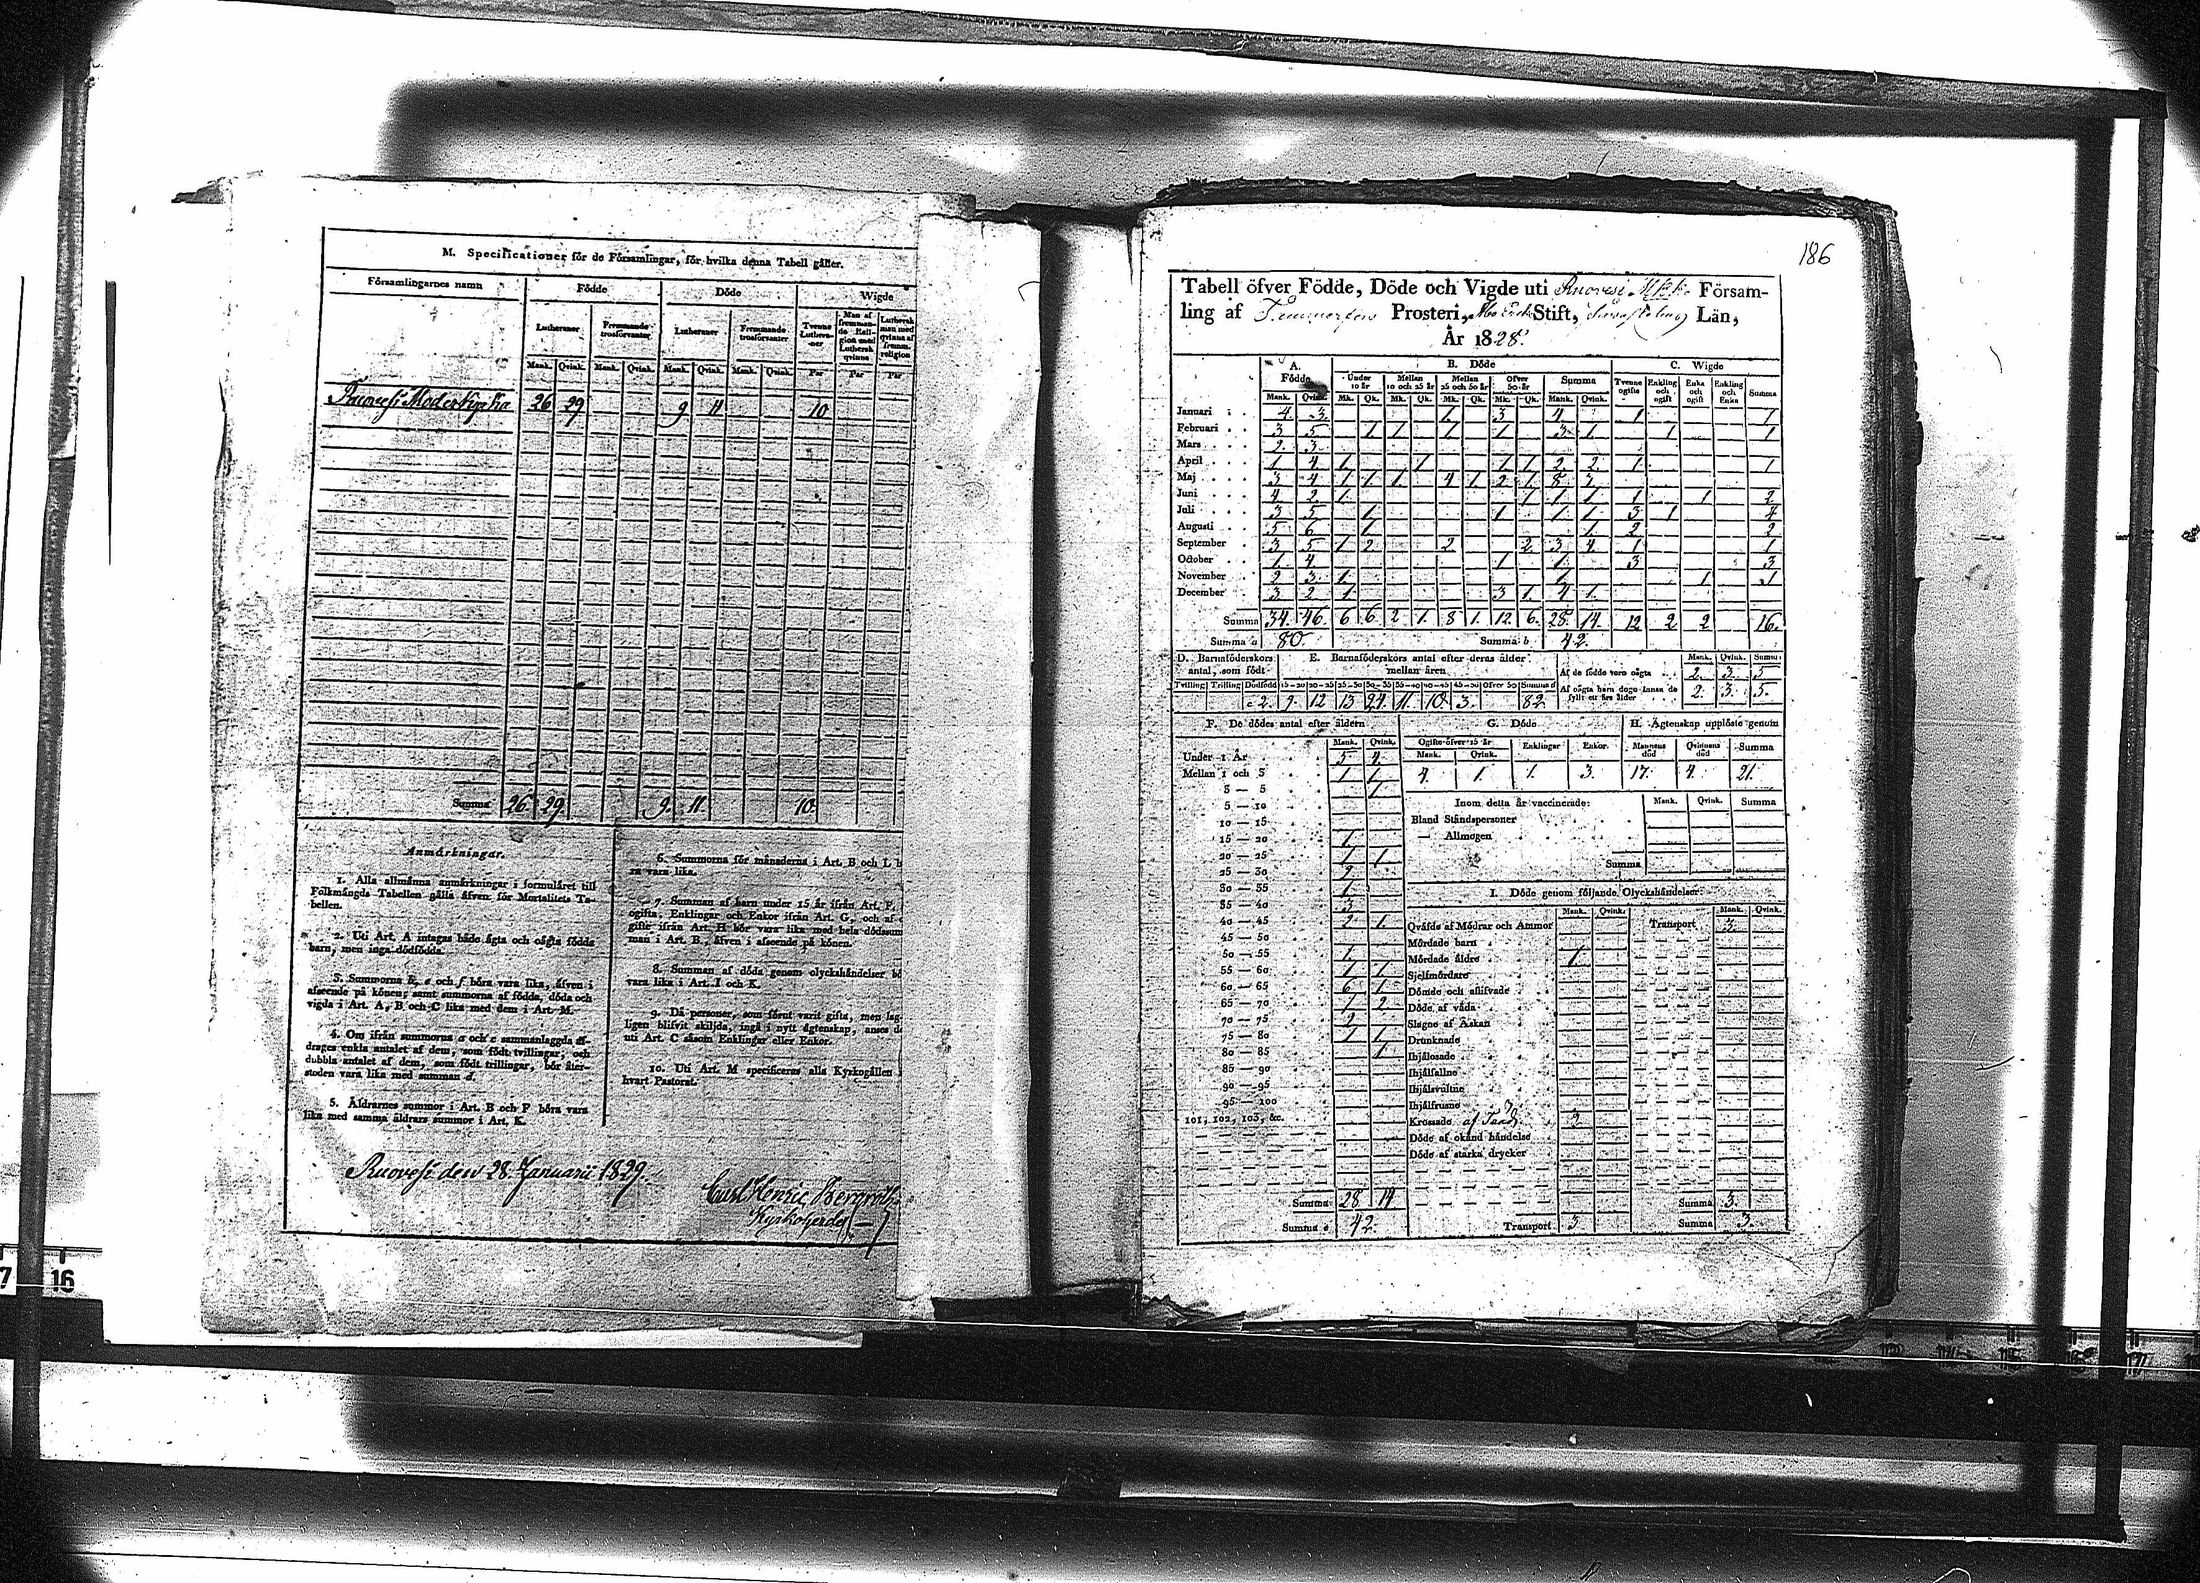 M. Specificationer för de Församlingar, för hvilka denna Tabell gäller.
Församlingarnes namn Födde Döde Wigde
Lutheraner Fremmande trosförvanter Lutheraner Fremmande trosförvanter Tvenne Lutheraner Man af fremmande Religion med Luthersk qvinna Luthersk man med qvinna af fremm. religion
Mank. Qvink. Mank. Qvink. Mank. Qvink. Mank. Qvink. Par Par Par
Ruovesi Moderkyrka 26 29 9 11 10
Summa 26 29 9. 11 10.
Anmärkningar.
1. Alla allmänna anmärkningar i formuläret till
Folkmängds Tabellen gälla äfven för Mortalitets Ta-
bellen.
2. Uti Art. A intagas både ägta och oägta födda
barn, men inga dödfödda.
3. Summorna b, e och f böra vara lika, äfven i
afseende på könen; samt summorna af födda, döda och
vigda i Art. A, B och C lika med dem i Art. M.
4. Om ifrån summorna a och c sammanlaggda af-
drages enkla antalet af dem, som födt tvillingar, och
dubbla antalet af dem, som födt trillingar, bör åter-
stoden vara lika med summan d.
5. Åldrarnes summor i Art. B och F böra vara
lika med samma åldrars summor i Art. K.
6. Summorna för månaderna i Art. B och L b
ra vara lika.
7. Summan af barn under 15 år ifrån Art. F,
ogifta, Enklingar och Enkor ifrån Art. G, och af
gifte ifrån Art. H bör vara lika med hela dödssum
man i Art. B, äfven i afseende på könen.
8. Summan af döda genom olyckshändelser bö
vara lika i Art. I och K.
9. Då personer, som förut varit gifta, men lag-
ligen blifvit skiljda, ingå i nytt ägtenskap, anses de
uti Art. C såsom Enklingar eller Enkor.
10. Uti Art. M specificeras alla Kyrkogällen
hvart Pastorat.
Ruovesi den 28 Januarii 1829.
Carl Henric Bergroth
Kyrkoherde
186
Tabell öfver Födde, Döde och Vigde uti Ruovesi Församling
ling af Prosteri, Stift, Län,
År 1828.
A. Födde B. Döde C. Wigde
Under 10 år Mellan 10 och 25 år Mellan 25 och 50 år Öfver 50 år Summa Tvenne ogifte Enkling och ogift Enka och ogift Enkling och Enka Summa
Mank. Qvink. Mk. Qk. Mk. Qk. Mk. Qk. Mk. Qk. Mank. Qvink.
Januari 4. 3. 1. 3 4 1 1
Februari 3 5 1 1 1 1 3 1 1 1
Mars 2. 3.
April 1 4 1 1 1 1 2 2 1. 1
Maj 3 4 1 1 1 4 1 2 1 8 3
Juni 4 2 1 1 1 1 1 1 2
Juli 3 5 1 1 1 1 3 1 4
Augusti 5 6 1 1 2 2
September 3 5 1 2 2 2 3 4 1 1
October 1 4 1 1 3 3
November 2 3 1 1 1 1
December 3 2 1 3 1 4 1
Summa 34. 46. 6 6 2 1. 8 1. 12. 6. 28. 14. 12 2 2 16.
Summa a 80. Summa b 42.
D. Barnaföderskors antal, som födt E. Barnaföderskors antal efter deras ålder mellan åren
Tvilling Trilling Dödfödd 15—20 20—25 25—30 30—35 35—40 40—45 45—50 Öfver 50 Summa d
c 2. 9. 12 13 24. 11. 10. 3. 82
Mank. Qvink. Summa
Af de födde voro oägta 2. 3. 5
Af oägta barn dogo innan de fyllt ett års ålder 2. 3. 5.
F. De dödes antal efter åldern
Mank. Qvink.
Under 1 År 5 4.
Mellan 1 och 3 1 1
3 — 5 1
5 — 10
10 — 15
15 — 20 1.
20 — 25 1 1
25 — 30 2
30 — 35 1
35 — 40 3
40 — 45 2 1.
45 — 50
50 — 55 1.
55 — 60 1 1
60 — 65 6 1
65 — 70 1 2
70 — 75 2
75 — 80 1 1
80 — 85 1
85 — 90
90 — 95
95 — 100
101, 102, 103, &c.
Summa 28 14
Summa e 42.
G. Döde
Ogifte öfver 15 år Enklingar Enkor
Mank. Qvink.
4. 1. 1. 3.
H. Ägtenskap upplöste genom
Mannens död Qvinnans död Summa
17. 4. 21.
Inom detta år vaccinerade: Mank. Qvink. Summa
Bland Ståndspersoner
— Allmogen
Summa
I. Döde genom följande Olyckshändelser:
Mank. Qvink. Mank. Qvink.
Qväfde af Mödrar och Ammor Transport 3.
Mördade barn
Mördade äldre 1.
Sjelfmördare
Dömde och aflifvade
Döde af våda
Slagne af Åskan
Drunknade
Ihjälosade
Ihjälfallne
Ihjälsvultne
Ihjälfrusne
Krossade 2
Döde af okänd händelse
Döde af starka drycker
Summa 3.
Transport 3 Summa 3.
16